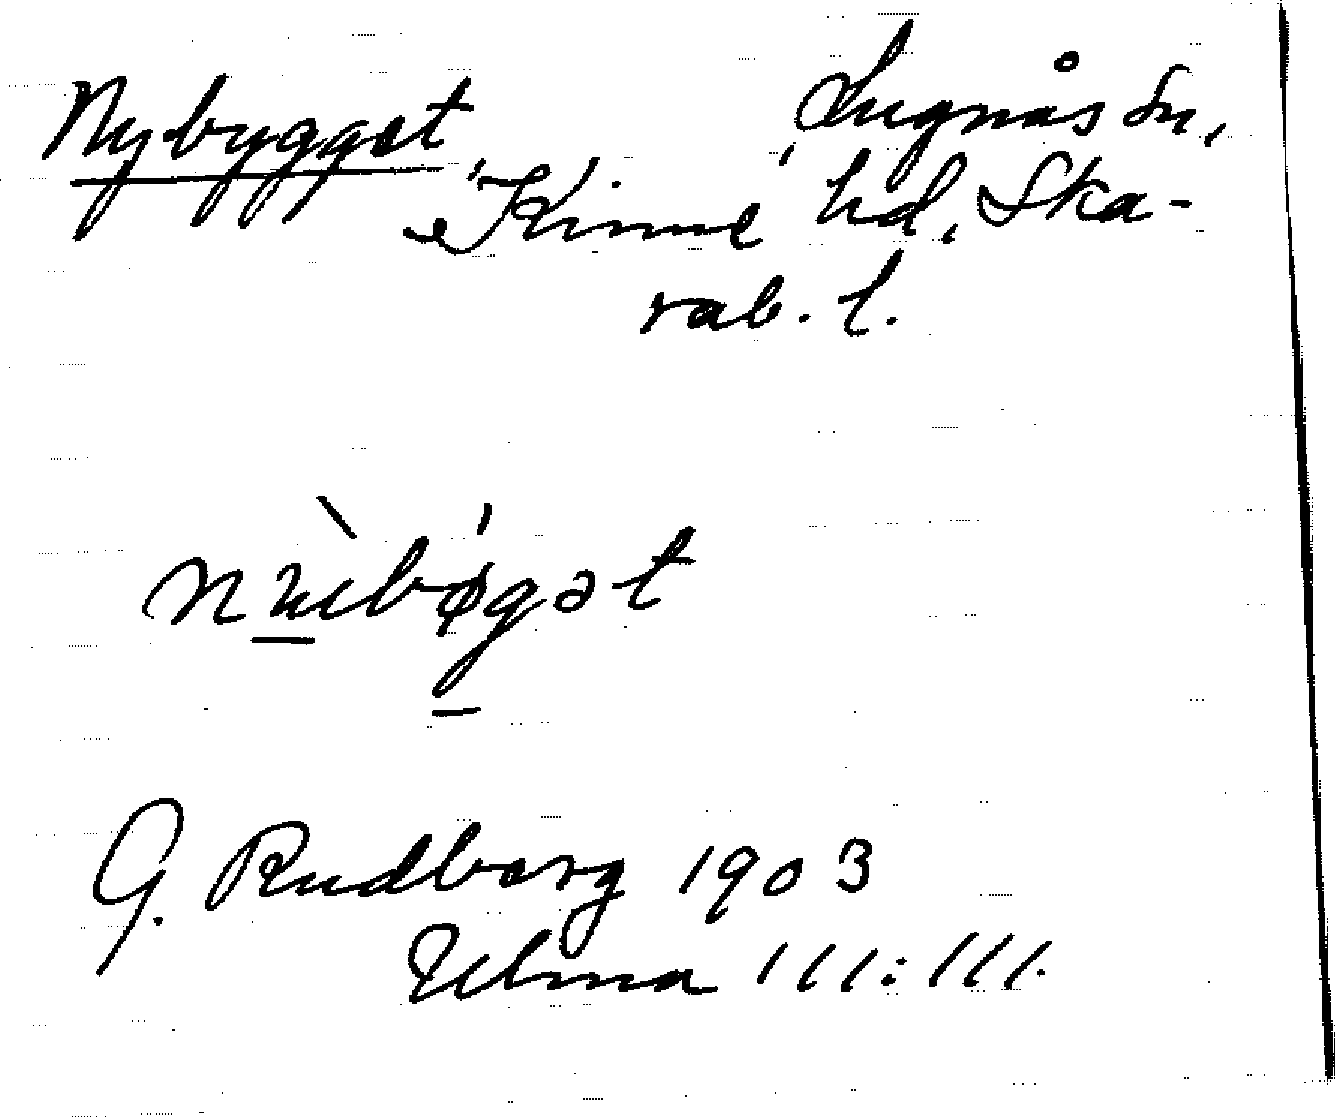 Nybygget Lugnås sn,
Kinne hd, Ska-
rab. l.
G. Rudberg 1903
Ulma 111:111.